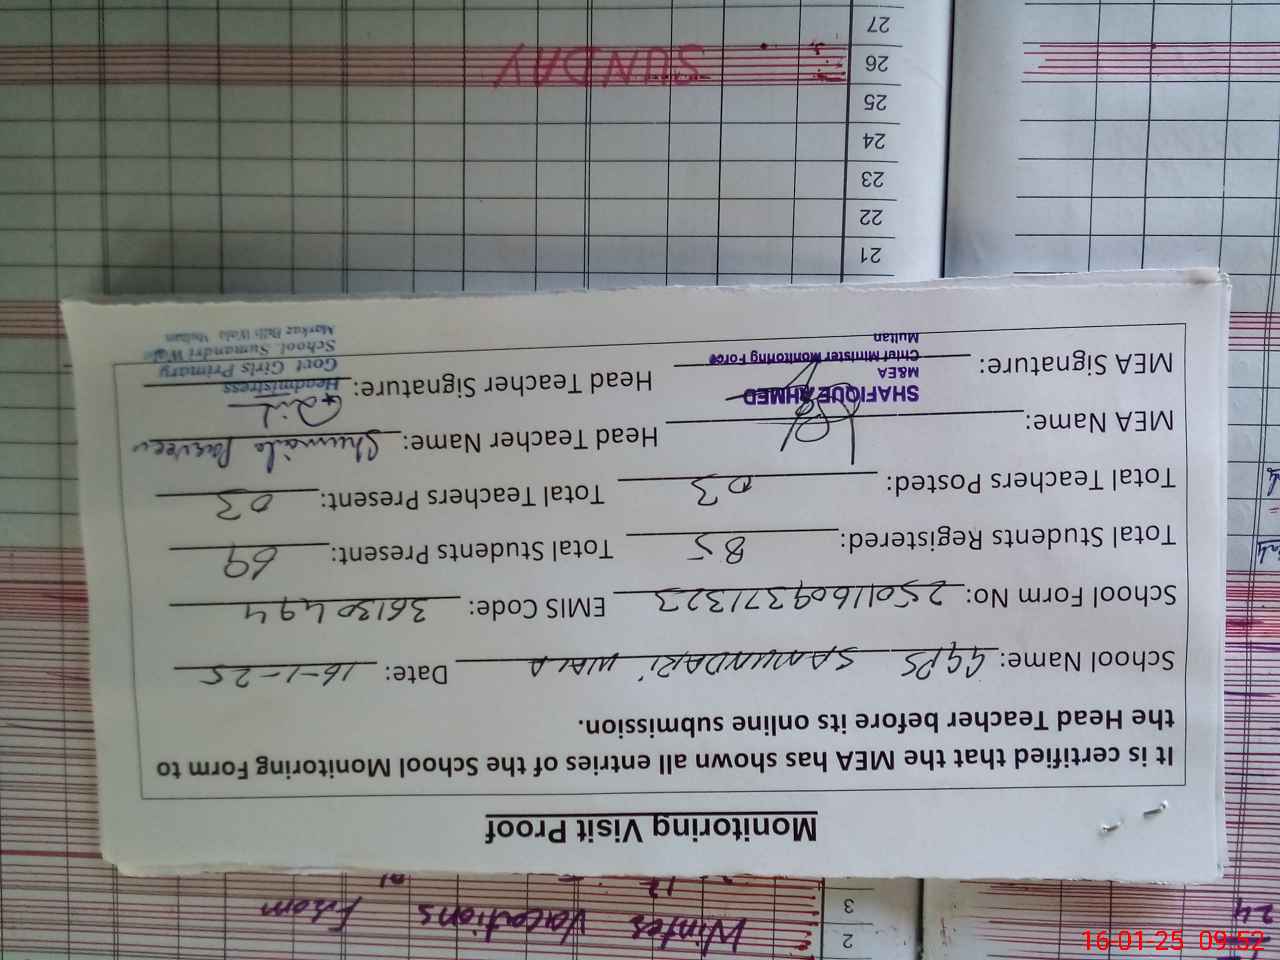 2 Winter Vacations From
3
Monitoring Visit Proof
It is certified that the MEA has shown all entries of the School Monitoring Form to
the Head Teacher before its online submission.
School Name: GGPS SAMUNDARI WALA Date: 16-1-25
School Form No: 25011609371323 EMIS Code: 36130494
Total Students Registered: 85 Total Students Present: 69
Total Teachers Posted: 03 Total Teachers Present: 03
MEA Name: Head Teacher Name: Shumaila Parveen
SHAFIQUE AHMED
M&EA
Chief Minister Monitoring Force
Multan
MEA Signature: Head Teacher Signature:
Headmistress
Govt Girls Primary
School Sumandri Wala
Markaz Billi Wala Multan
21
22
23
24
25
26 SUNDAY
27
16-01-25 09:52